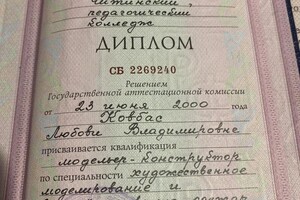 Читинский
педагогический
колледж
ДИПЛОМ
СБ 2269240
Решением
Государственной аттестационной комиссии
от 23 июня 2000 года
Ковбас
Любови Владимировне
присваивается квалификация
модельер-конструктор
по специальности художественное
моделирование и